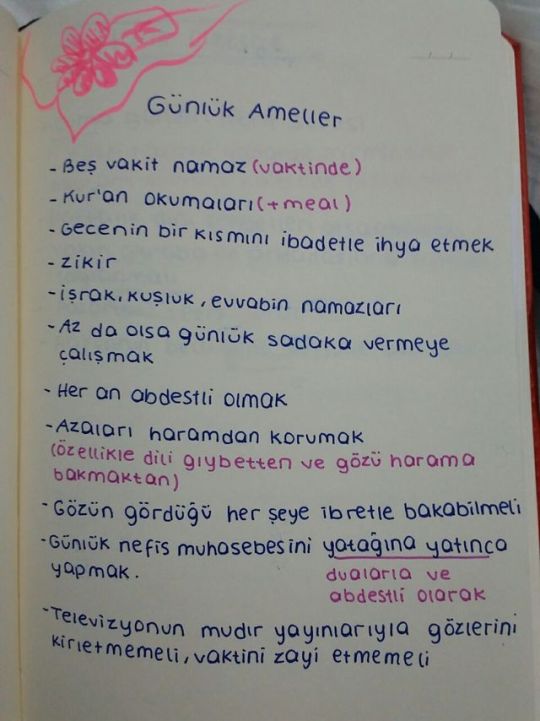 Günlük Ameller
- Beş vakit namaz (vaktinde)
- Kur'an okumaları (+meal)
- Gecenin bir kısmını ibadetle ihya etmek
- zikir
- işrak, kuşluk, evvabin namazları
- Az da olsa günlük sadaka vermeye
çalışmak
- Her an abdestli olmak
- Azaları haramdan korumak
(özellikle dili gıybetten ve gözü harama
bakmaktan)
- Gözün gördüğü her şeye ibretle bakabilmeli
- Günlük nefis muhasebesini yatağına yatınca
yapmak.
dualarla ve
abdestli olarak
- Televizyonun mudır yayınlarıyla gözlerini
kirletmemeli, vaktini zayi etmemeli